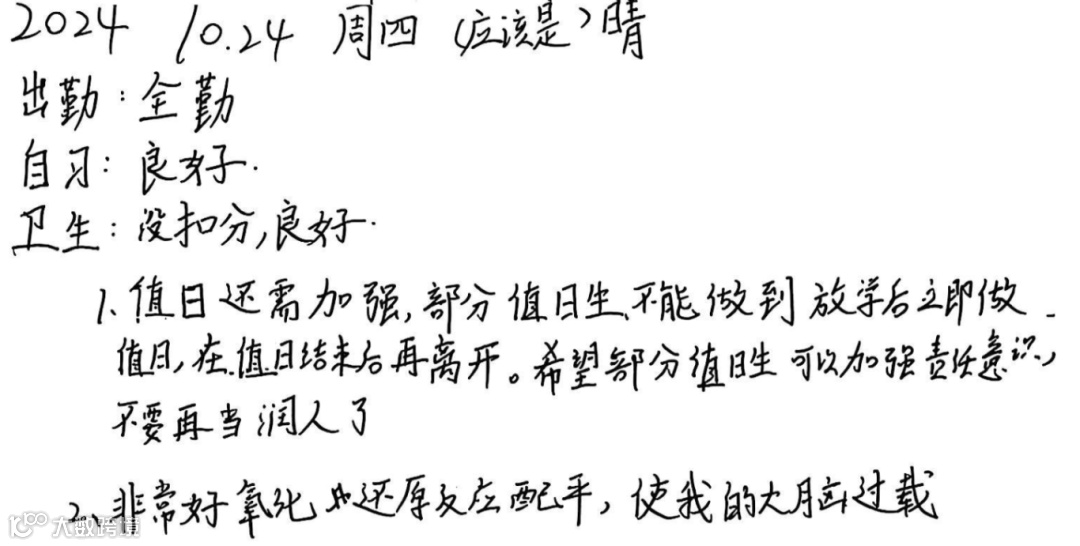 2024 10.24 周四 (应该是)晴
出勤：全勤
自习：良好.
卫生：没扣分,良好.
1.值日还需加强,部分值日生不能做到放学后立即做
值日,在值日结束后再离开。希望部分值日生可以加强责任意识,
不要再当润人了
2.非常好氧化还原反应配平,使我的大脑过载
大数跨境